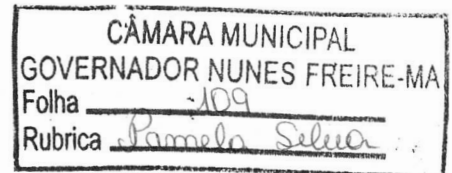 CÂMARA MUNICIPAL
GOVERNADOR NUNES FREIRE-MA
Folha 109
Rubrica Pamela Silva